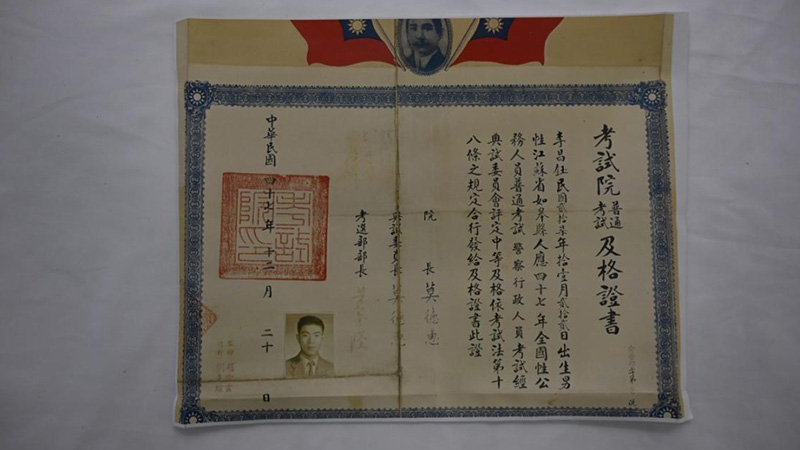 考試院普通考試及格證書
李昌任民國貳拾柒年拾壹月貳拾貳日出生男
性江蘇省如皋縣人應四十七年全國性公
務人員普通考試警察行政人員考試經
典試委員會評定中等及格依考試法第十
八條之規定合行發給及格證書此證
院長莫德惠
典試委員長莫德惠
考選部部長
中華民國四十七年十二月二十日
考試院印
字第 號